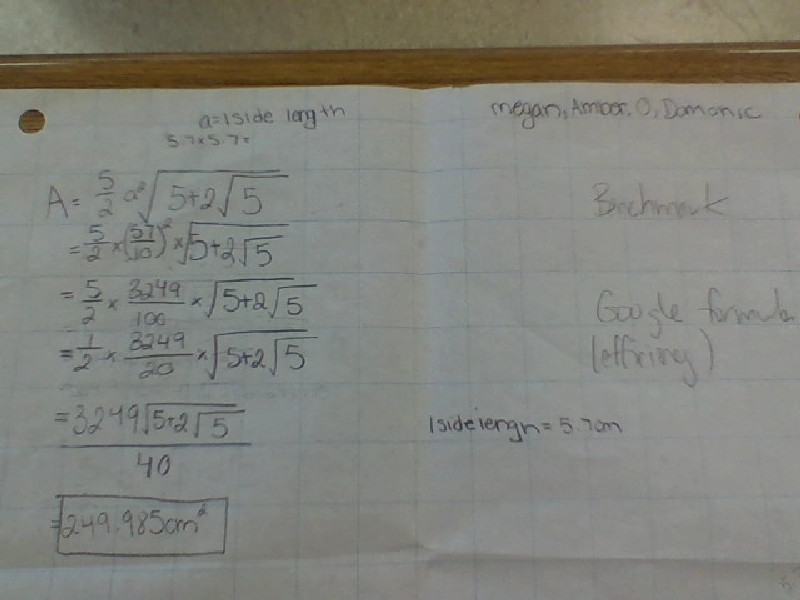 a=1side length
5.7×5.7=
megan, Amber, O, Domonic
A = 5/2 a²√(5+2√5)
= 5/2 × (57/10)² × √(5+2√5)
= 5/2 × 3249/100 × √(5+2√5)
= 1/2 × 3249/20 × √(5+2√5)
= 3249√(5+2√5) / 40
= 249.985cm²
Google formula
1side length = 5.7cm